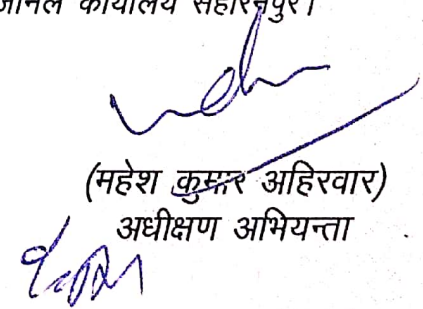 जोनल कार्यालय सहारनपुर।
(महेश कुमार अहिरवार)
अधीक्षण अभियन्ता